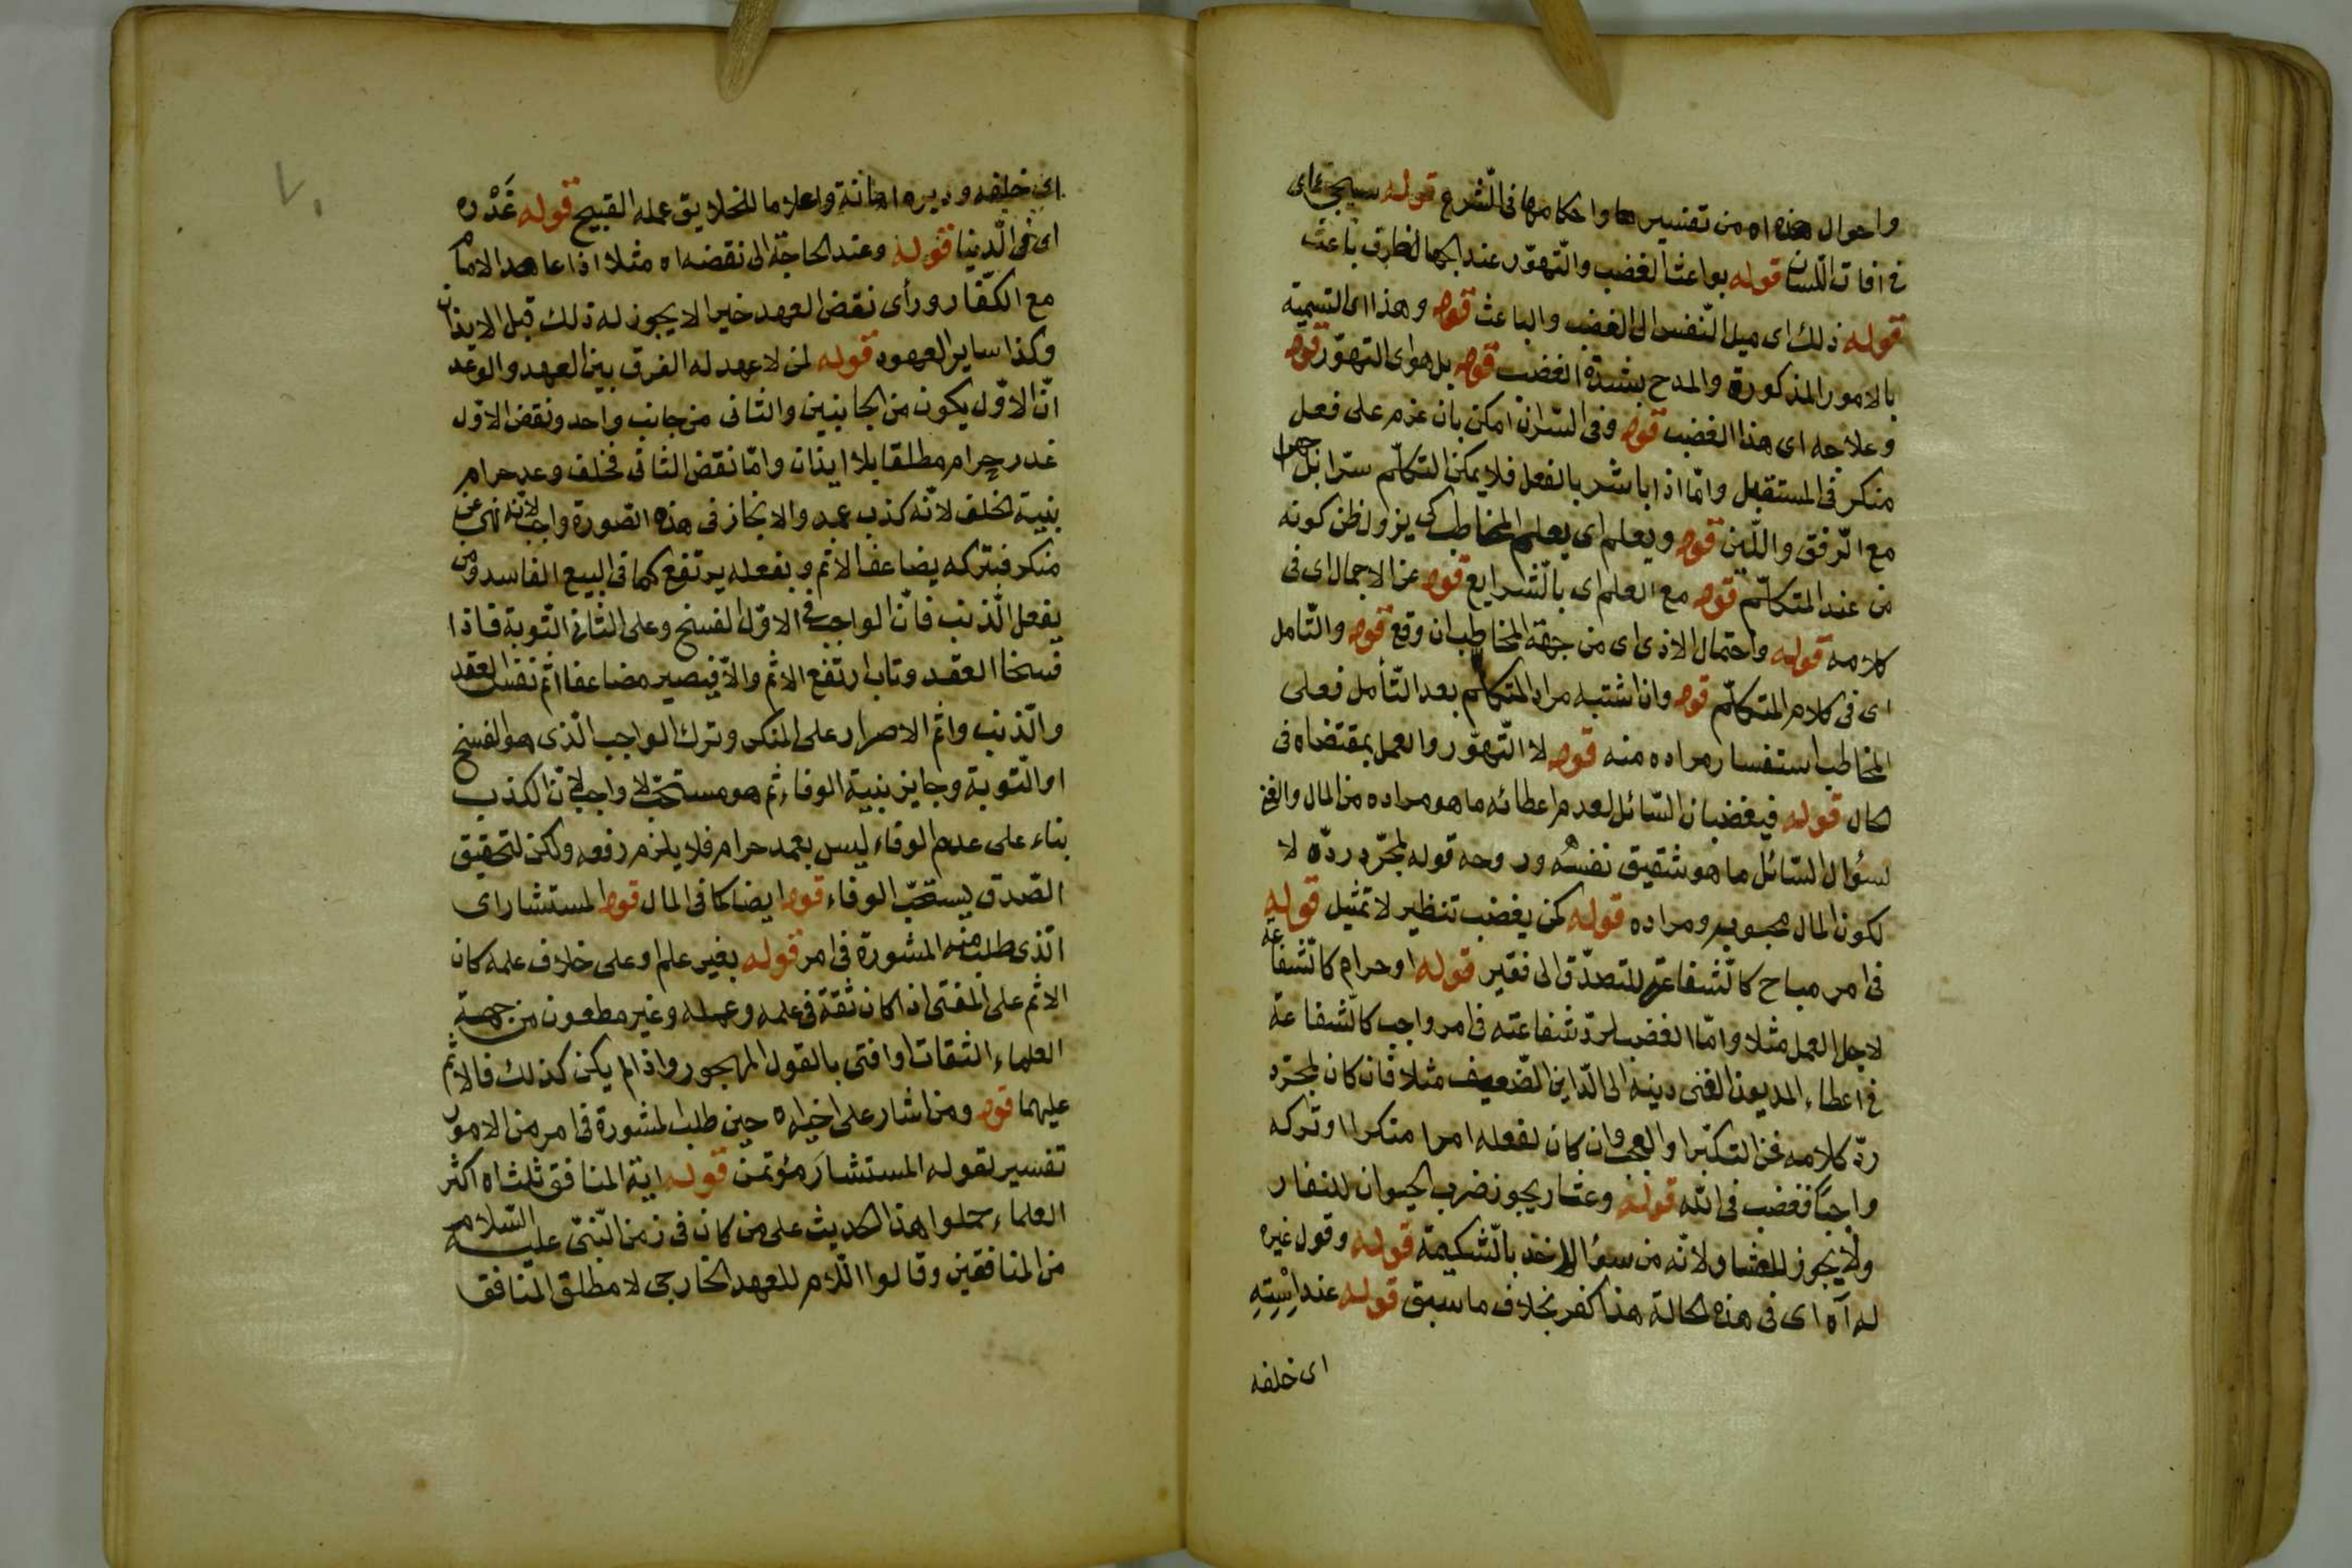 واحوال هذه اه من تفسيرها واحكامها فى الشرع قوله سيجئ اى
فى افات اللسان قوله بواعث الغضب والتهور عند الجهال لطرف باعث
قوله ذلك اى ميل النفس الى الغضب والباعث قوله وهذا اى التسمية
بالامور المذكورة والمدح بشدة الغضب قوله بل هو اى التهور قوله
وعلاجه اى هذا الغضب قوله وفى السر ان امكن بان عزم على فعل
منكر فى المستقبل واما اذا باشر بالفعل فلا يمكن التكلم سرا بل جهرا
مع الرفق واللين قوله ويعلم اى يعلم المخاطب كى يزول ظن كونه
من عند المتكلم قوله مع العلم اى بالشرايع قوله عن الاجمال اى فى
كلامه قوله واحتمال الاذى اى من جهة المخاطب ان وقع قوله والتامل
اى فى كلام المتكلم قوله وان اشتبه مراد المتكلم بعد التأمل فعلى
المخاطب استفسار مراده منه قوله لا التهور والعمل بمقتضاه فى
الحال قوله فيغضبان السائل لعدم اعطائه ما هو مراده من المال والغنى
لسؤال السائل ما هو شقيق نفسه وروحه قوله لمجرد رده لا
لكون المال محبوبه ومراده قوله كمن يغضب تنظير لا تمثيل قوله
فى امر مباح كالشفاعة للتصدق الى فقير قوله او حرام كالشفاعة
لاجل العمل مثلا واما الغضب لرد شفاعته فى امر واجب كالشفاعة
فى اعطاء المديون الغنى دينه الى الداين الضعيف مثلا فان كان لمجرد
رد كلامه فمن التكبر والعجب وان كان لفعله امرا منكرا او تركه
واجبا فغضب فى الله قوله وعثار يجوز ضرب الحيوان للنفار
ولا يجوز للعثار لانه من سوء الاخذ بالشكيمة قوله وقول غيره
له آه اى فى هذه الحالة هذا كفر بخلاف ما سبق قوله عند اِسْتِهِ
اى خلفه
اى خلفه ودبره اهانة واعلاما للخلايق عمله القبيح قوله غَدْره
اى فى الدنيا قوله وعند الحاجة الى نقضه اه مثلا اذا عاهد الامام
مع الكفار ورأى نقض العهد خيرا لا يجوز له ذلك قبل الايذان
وكذا ساير العهود قوله لمن لا عهد له الفرق بين العهد والوعد
ان الاول يكون من الجانبين والثانى من جانب واحد ونقض الاول
غدر حرام مطلقا بلا ايذان واما نقض الثانى فخلف وعد حرام
بنية الخلف لانه كذب عمد والانجاز فى هذه الصورة واجب لانه نهى عن
منكر فبتركه يضاعف الاثم وبفعله يرتفع كما فى البيع الفاسد ومن
يفعل الذنب فان الواجب فى الاول الفسخ وعلى الثانى التوبة فاذا
فسخا العقد وتاب ارتفع الاثم والا فيصير مضاعفا اثم نفس العقد
والذنب واثم الاصرار على المنكر وترك الواجب الذى هو الفسخ
او التوبة وجايز بنية الوفاء ثم هو مستحب لا واجب لان الكذب
بناء على عدم الوفاء ليس بعمد حرام فلا يلزم رفعه ولكن لتحقيق
الصدق يستحب الوفاء قوله ايضا كما فى المال قوله المستشار اى
الذى طلب منه المشورة فى امر قوله بغير علم او على خلاف علمه كان
الاثم على المفتى اذا كان ثقة فى علمه وعمله وغير مطعون من جهة
العلماء الثقات او افتى بالقول المهجور واذا لم يكن كذلك فالاثم
عليهما قوله ومن اشار على اخيه اه حين طلب المشورة فى امر من الامور
تفسير لقوله المستشارَ مؤتمن قوله اية المنافق ثلث اه اكثر
العلماء حملوا هذا الحديث على من كان فى زمن النبى عليه السلام
من المنافقين وقالوا اللام للعهد الخارجى لا مطلق المنافق